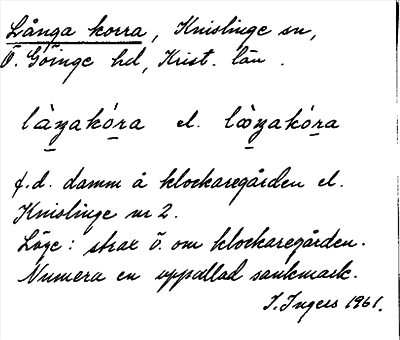 Långa korra, Knislinge sn,
Ö. Göinge hd, Krist. län.
làŋakóra el. lòŋakóra
f.d. damm å klockaregården el.
Knislinge nr 2.
Läge: strax ö. om klockaregården.
Numera en uppodlad sankmark.
I. Ingers 1961.